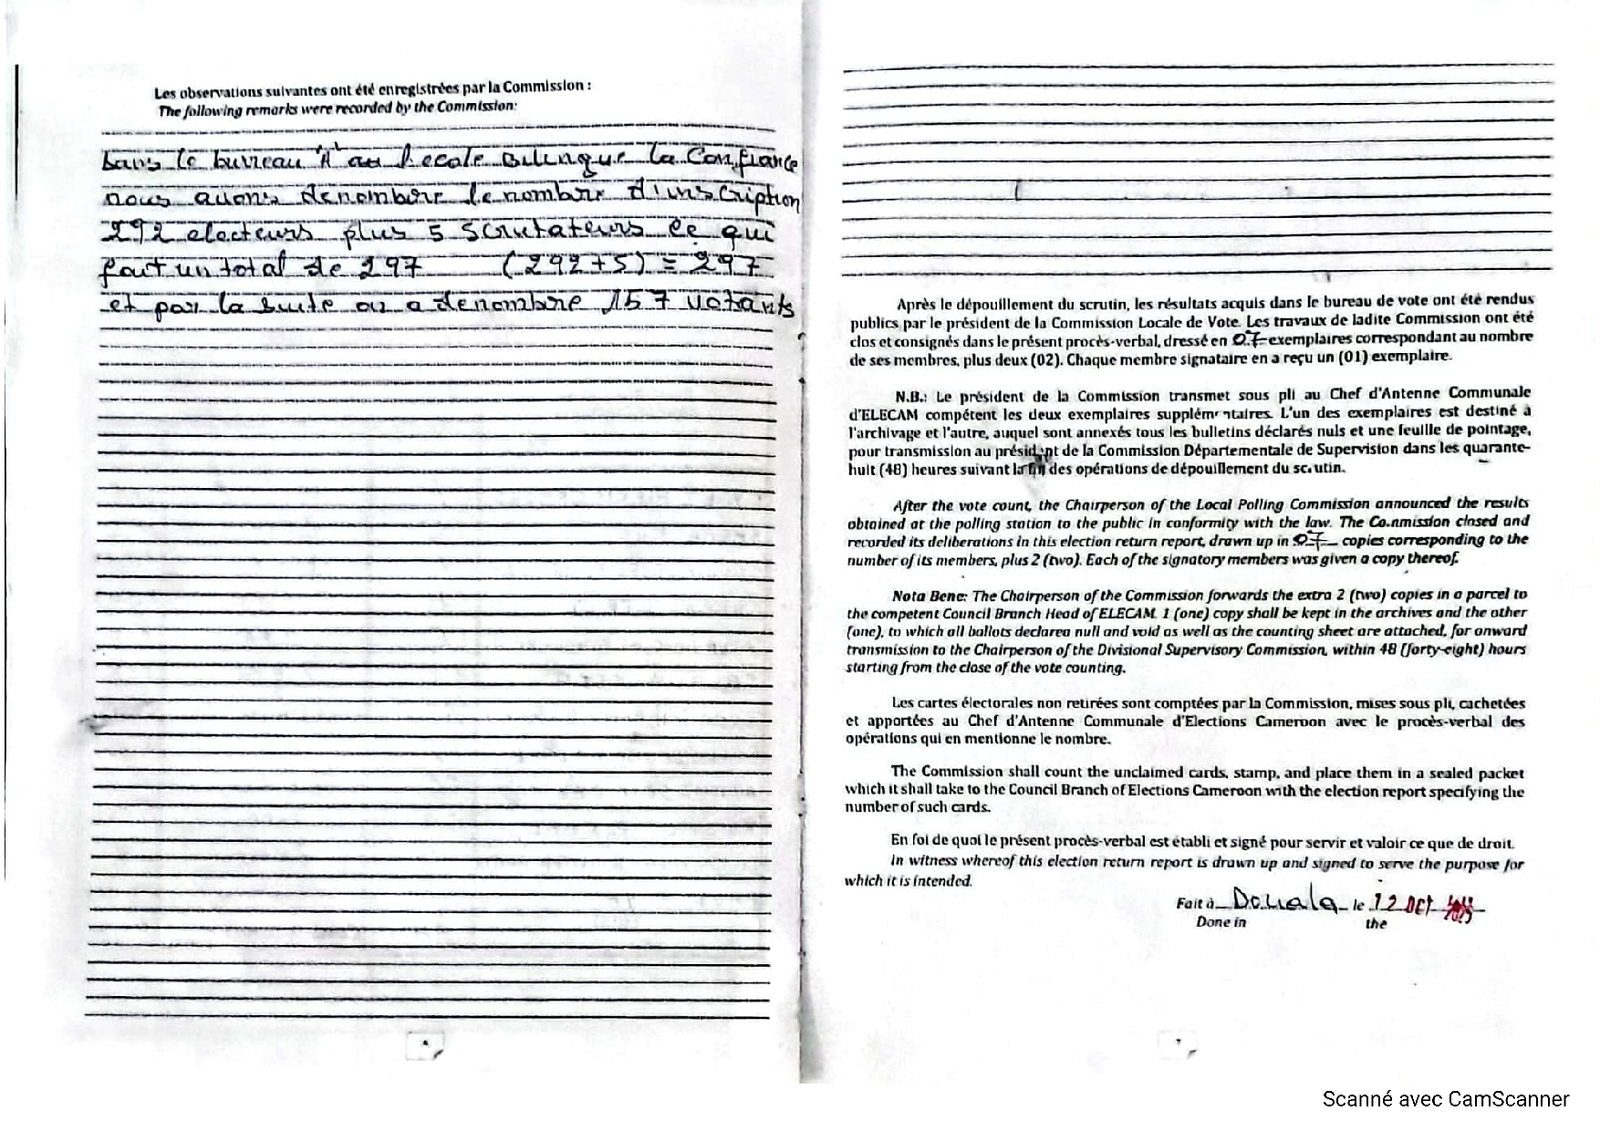 Les observations suivantes ont été enregistrées par la Commission :
The following remarks were recorded by the Commission:
Dans le bureau "A" au l'ecole Bilingue la Confiance
nous avons denombre le nombre d'inscription
292 electeurs plus 5 Scrutateurs ce qui
fait un total de 297 (292+5) = 297
et par la suite on a denombre 157 votants
Après le dépouillement du scrutin, les résultats acquis dans le bureau de vote ont été rendus
publics par le président de la Commission Locale de Vote. Les travaux de ladite Commission ont été
clos et consignés dans le présent procès-verbal, dressé en 07 exemplaires correspondant au nombre
de ses membres, plus deux (02). Chaque membre signataire en a reçu un (01) exemplaire.
N.B.: Le président de la Commission transmet sous pli au Chef d'Antenne Communale
d'ELECAM compétent les deux exemplaires supplémentaires. L'un des exemplaires est destiné à
l'archivage et l'autre, auquel sont annexés tous les bulletins déclarés nuls et une feuille de pointage,
pour transmission au président de la Commission Départementale de Supervision dans les quarante-
huit (48) heures suivant la fin des opérations de dépouillement du scrutin.
After the vote count, the Chairperson of the Local Polling Commission announced the results
obtained at the polling station to the public in conformity with the law. The Commission closed and
recorded its deliberations in this election return report, drawn up in 07 copies corresponding to the
number of its members, plus 2 (two). Each of the signatory members was given a copy thereof.
Nota Bene: The Chairperson of the Commission forwards the extra 2 (two) copies in a parcel to
the competent Council Branch Head of ELECAM. 1 (one) copy shall be kept in the archives and the other
(one), to which all ballots declared null and void as well as the counting sheet are attached, for onward
transmission to the Chairperson of the Divisional Supervisory Commission, within 48 (forty-eight) hours
starting from the close of the vote counting.
Les cartes électorales non retirées sont comptées par la Commission, mises sous pli, cachetées
et apportées au Chef d'Antenne Communale d'Elections Cameroon avec le procès-verbal des
opérations qui en mentionne le nombre.
The Commission shall count the unclaimed cards, stamp, and place them in a sealed packet
which it shall take to the Council Branch of Elections Cameroon with the election report specifying the
number of such cards.
En foi de quoi le présent procès-verbal est établi et signé pour servir et valoir ce que de droit.
In witness whereof this election return report is drawn up and signed to serve the purpose for
which it is intended.
Fait à Douala le 12 OCT
Done in the
Scanné avec CamScanner